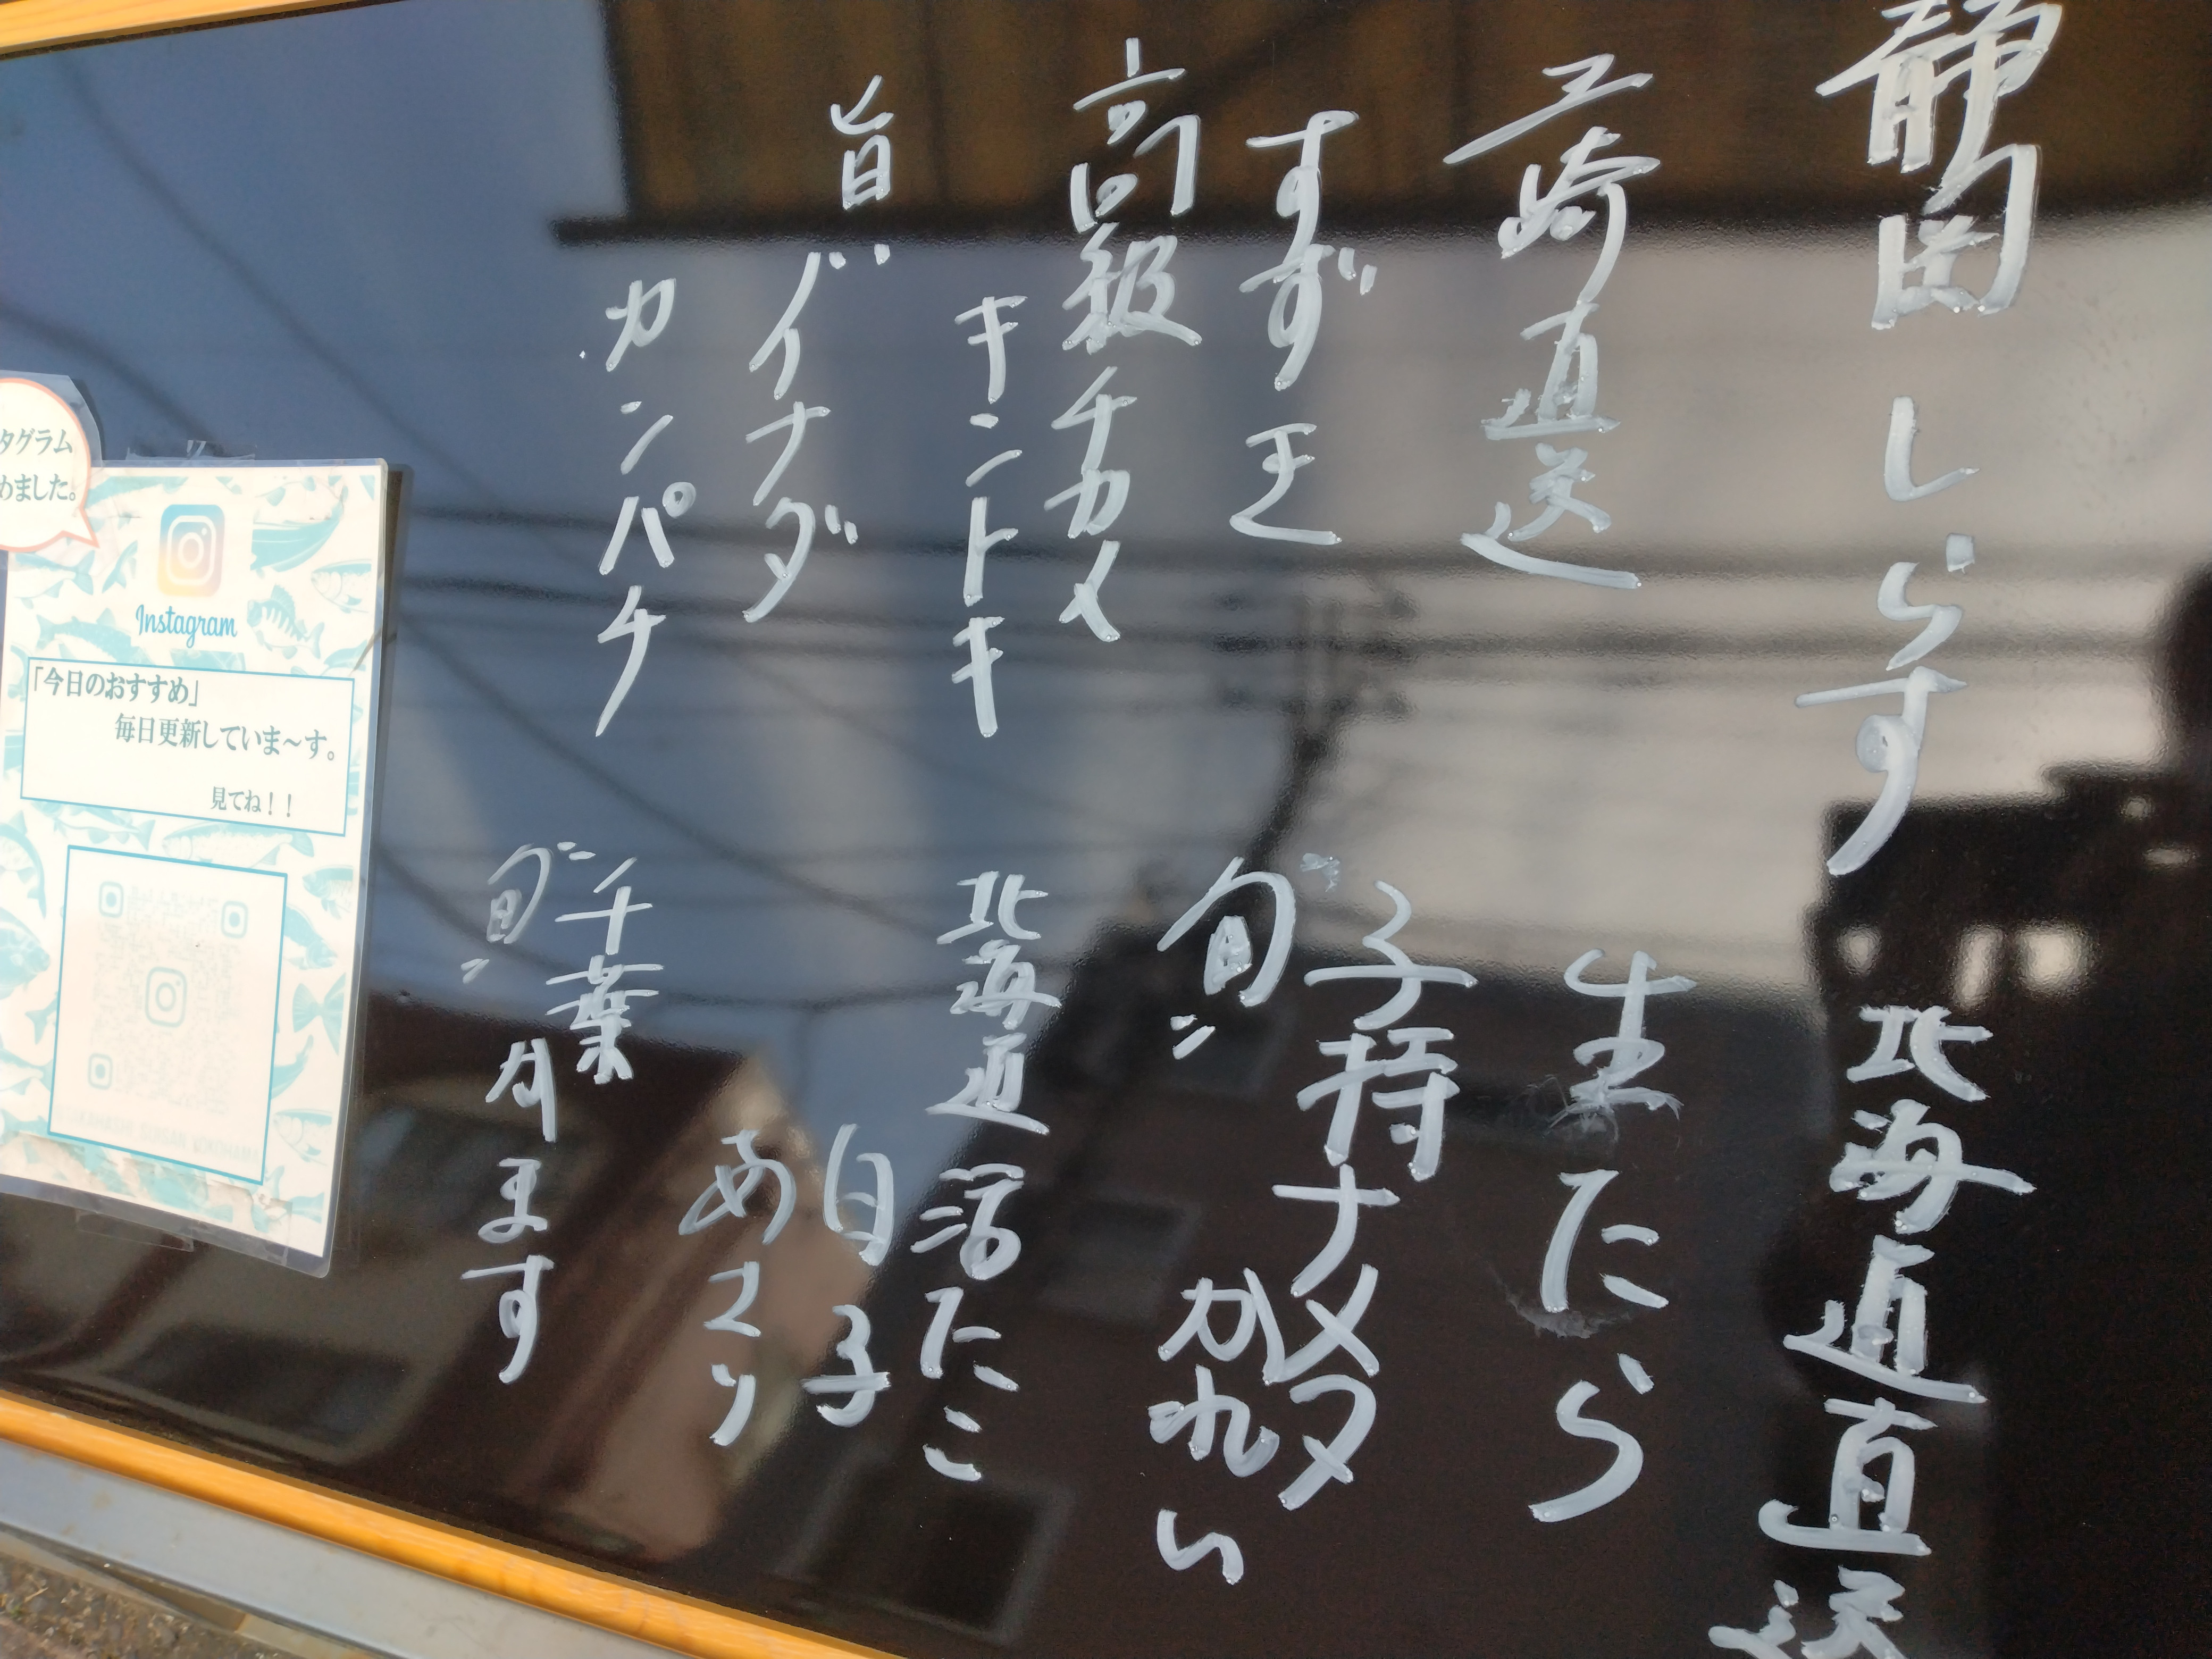 静岡しらす
三崎直送
高級チカメ
キントキ
旨〟イナダ
カンパチ
北海道直送
生たら
子持ナメタ
〝旬〟かれい
北海道活たこ
白子
千葉
〝旬〟カます
タグラム
めました。
Instagram
「今日のおすすめ」
毎日更新していま～す。
見てね！！